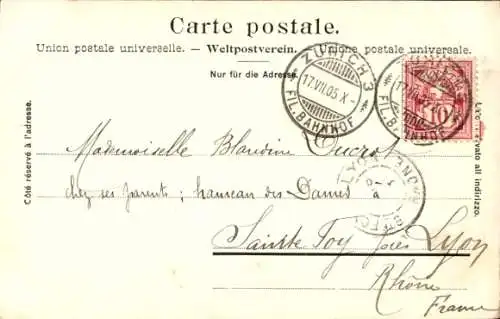 Carte postale.
Union postale universelle. – Weltpostverein. – Unione postale universale.
Nur für die Adresse.
Côté réservé à l'adresse.
ZÜRICH 3
17.VII.05.X-
FIL. BAHNHOF
10
FIL. BAHNHOF
Mademoiselle Blandine Ducrot
chez ses parents; hameau des Dames
LYON
Sainte Foy près Lyon
Rhône
France